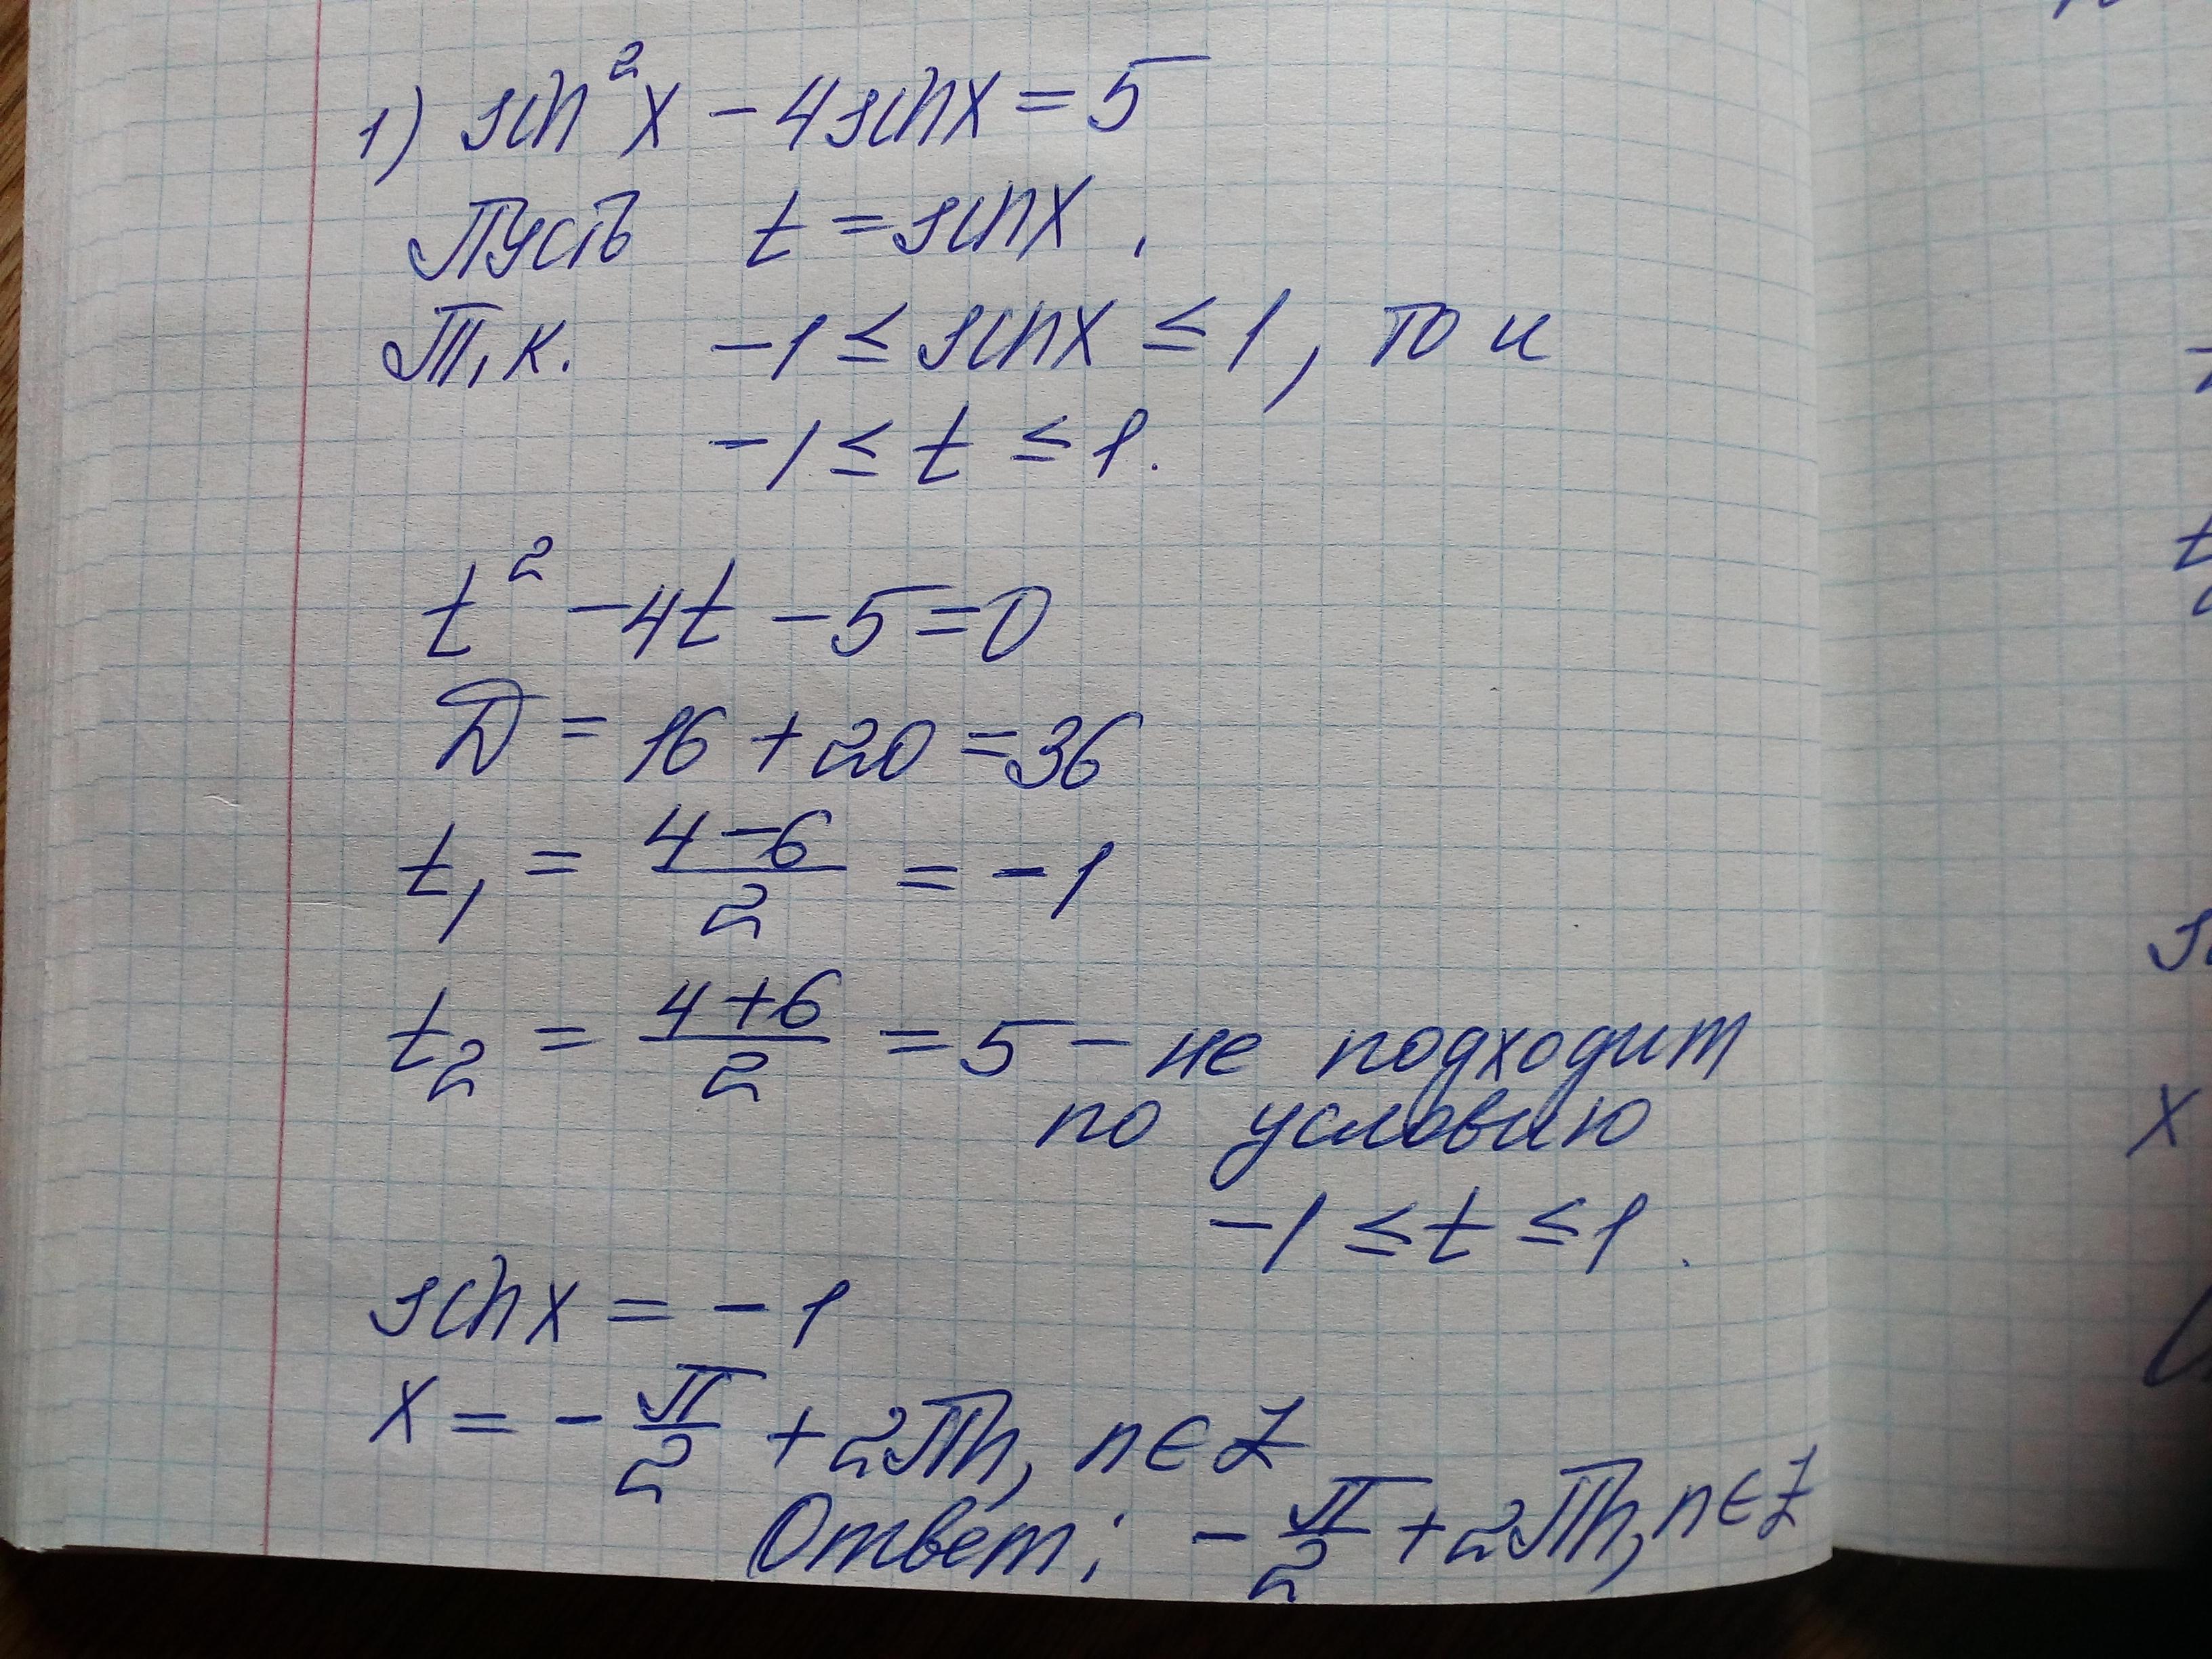 1) sin²x - 4sinx = 5
Пусть t = sinx.
Т.к. -1 ≤ sinx ≤ 1, то и
-1 ≤ t ≤ 1.
t² - 4t - 5 = 0
D = 16 + 20 = 36
t₁ = (4-6)/2 = -1
t₂ = (4+6)/2 = 5 - не подходит
по условию
-1 ≤ t ≤ 1.
sinx = -1
x = -π/2 + 2πn, n ∈ Z
Ответ: -π/2 + 2πn, n ∈ Z